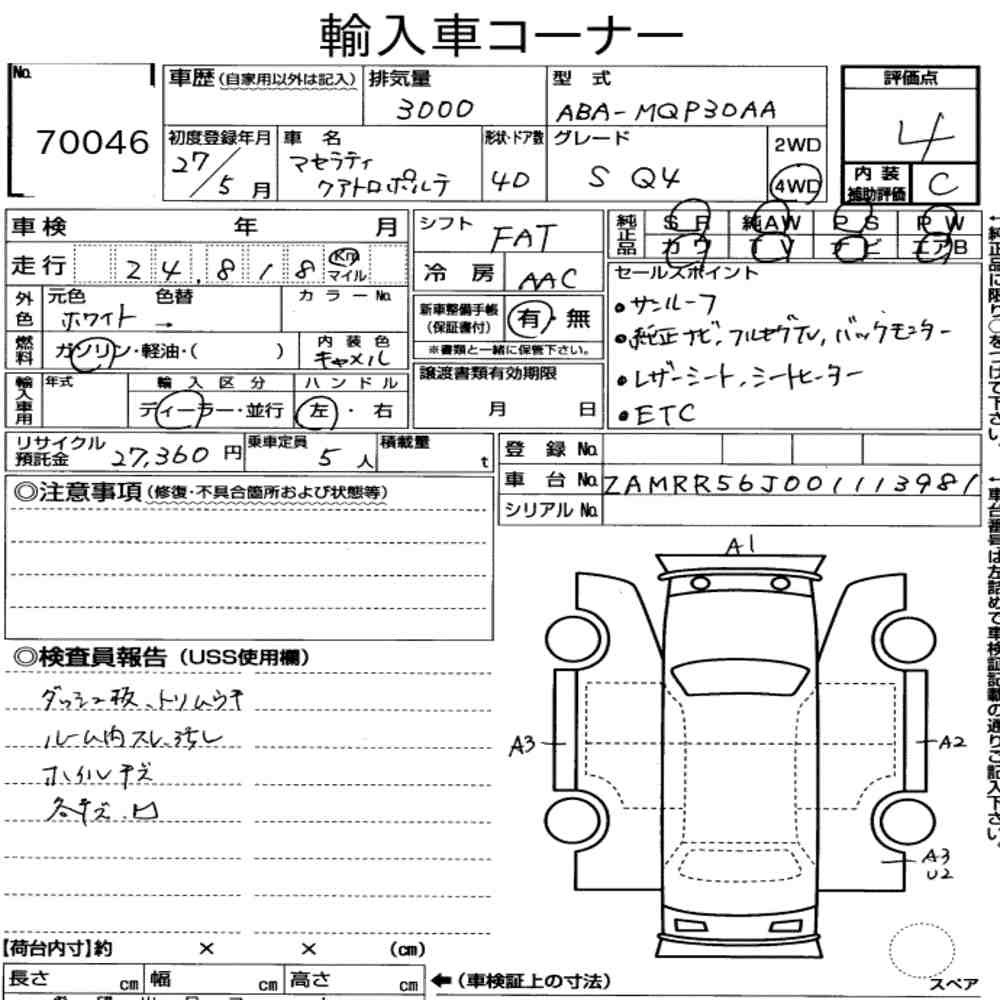 輸入車コーナー
No. 70046
車歴 (自家用以外は記入)
排気量 3000
型式 ABA-MQP30AA
評価点 4
初度登録年月 27/5月
車名 マセラティ クアトロポルテ
形状・ドア数 4D
グレード S Q4
2WD
4WD
内装補助評価 C
車検 年 月
走行 24,818 Km マイル
外色 元色 ホワイト 色替 →
カラーNo.
燃料 ガソリン・軽油・( )
内装色 キャメル
輸入車用 年式
輸入区分 ディーラー・並行
ハンドル 左・右
シフト FAT
冷房 AAC
新車整備手帳(保証書付) 有・無
※書類と一緒に保管下さい。
譲渡書類有効期限
月 日
純正品 SR 純AW PS PW
カワ TV ナビ エアB
セールスポイント
●サンルーフ
●純正ナビ,フルセグTV,バックモニター
●レザーシート,シートヒーター
●ETC
←純正品に限り○をつけて下さい。
リサイクル預託金 27,360円
乗車定員 5人
積載量 t
登録No.
車台No. ZAMRR56J001113981
シリアルNo.
↑車台番号は左詰めで車検証記載の通りご記入下さい。
◎注意事項 (修復・不具合箇所および状態等)
◎検査員報告 (USS使用欄)
ダッシュ板、トリムウキ
ルーム内スレ、汚レ
ホイルキズ
各キズ.凹
A1
A3
A2
A3
U2
【荷台内寸】約 × × (cm)
長さ cm 幅 cm 高さ cm
←(車検証上の寸法)
スペア